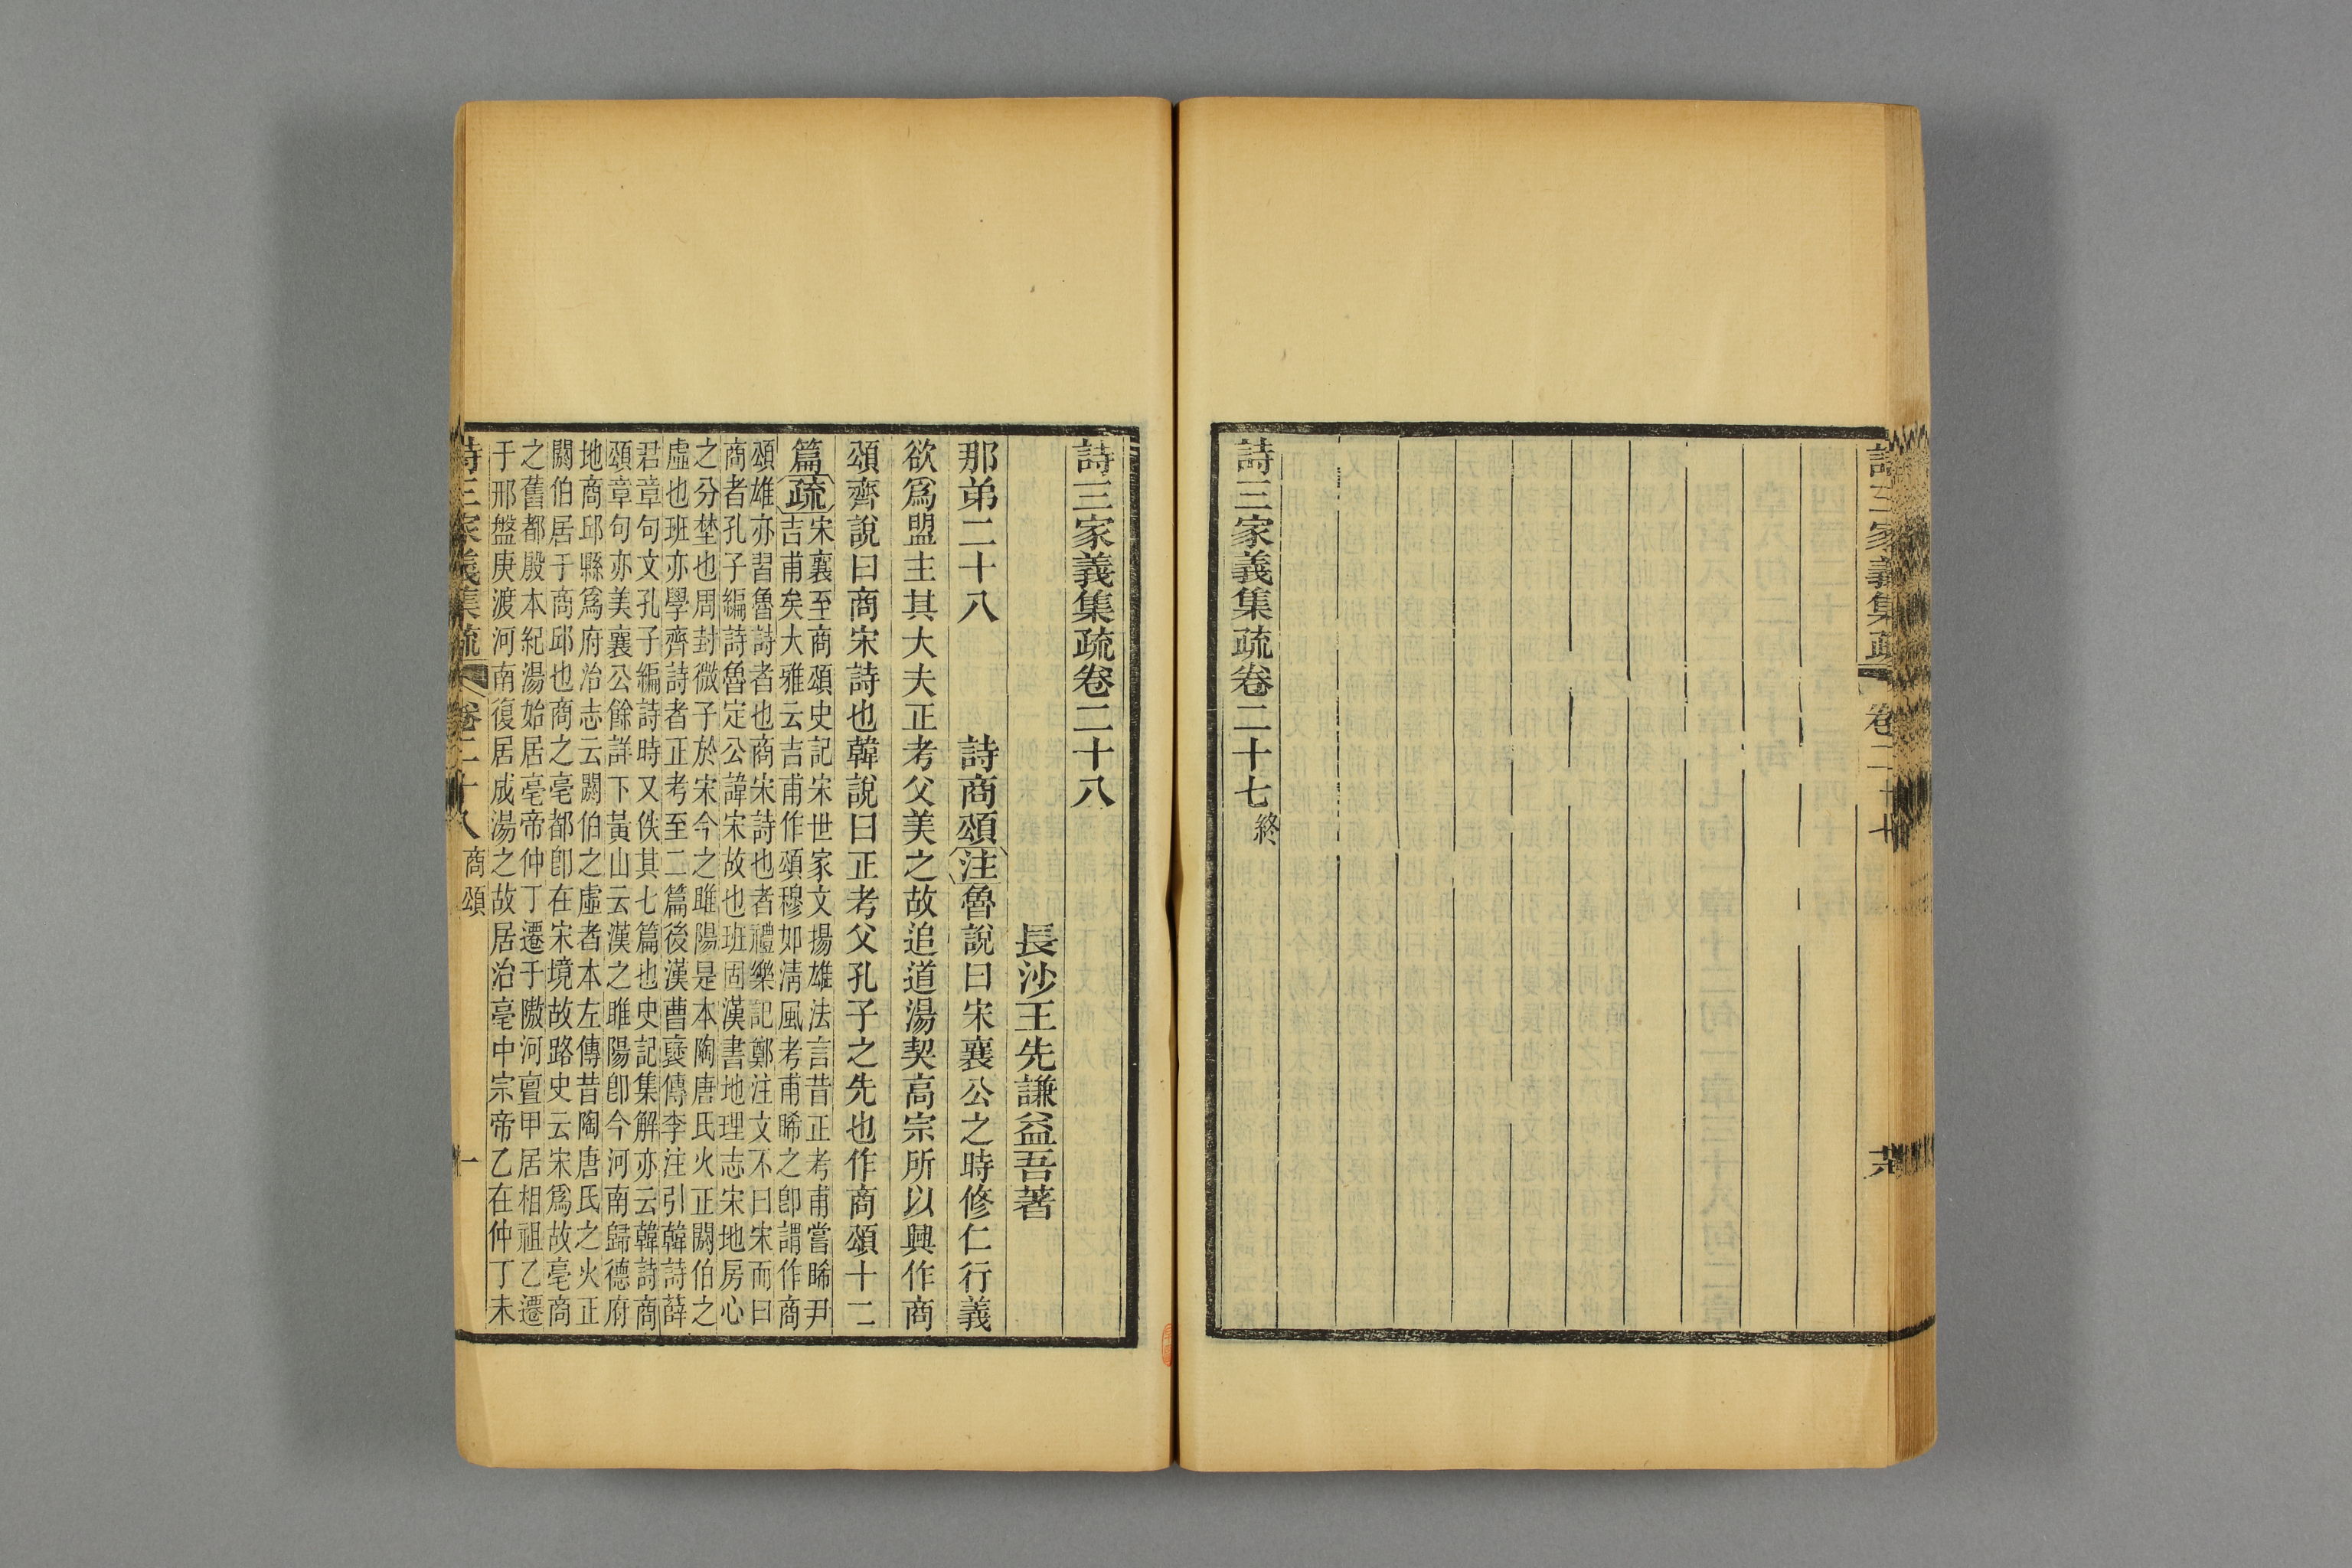 詩三家義集疏
卷二十七
詩三家義集疏卷二十七終
詩三家義集疏卷二十八
長沙王先謙益吾著
那弟二十八 詩商頌注魯說曰宋襄公之時修仁行義
欲爲盟主其大夫正考父美之故追道湯契高宗所以興作商
頌齊說曰商宋詩也韓說曰正考父孔子之先也作商頌十二
篇疏宋襄至商頌史記宋世家文揚雄法言昔正考甫嘗睎尹
吉甫矣大雅云吉甫作頌穆如淸風考甫睎之卽謂作商
頌雄亦習魯詩者也商宋詩也者禮樂記鄭注文不曰宋而曰
商者孔子編詩魯定公諱宋故也班固漢書地理志宋地房心
之分埜也周封微子於宋今之睢陽是本陶唐氏火正閼伯之
虛也班亦學齊詩者正考至二篇後漢曹褒傳李注引韓詩薛
君章句文孔子編詩時又佚其七篇也史記集解亦云韓詩商
頌章句亦美襄公餘詳下黃山云漢之睢陽卽今河南歸德府
地商邱縣爲府治志云閼伯之虛者本左傳昔陶唐氏之火正
閼伯居于商邱也商之亳都卽在宋境故路史云宋爲故亳商
之舊都殷本紀湯始居亳帝仲丁遷于隞河亶甲居相祖乙遷
于邢盤庚渡河南復居成湯之故居治亳中宗帝乙在仲丁未
詩三家義集疏 卷二十八 商頌 一